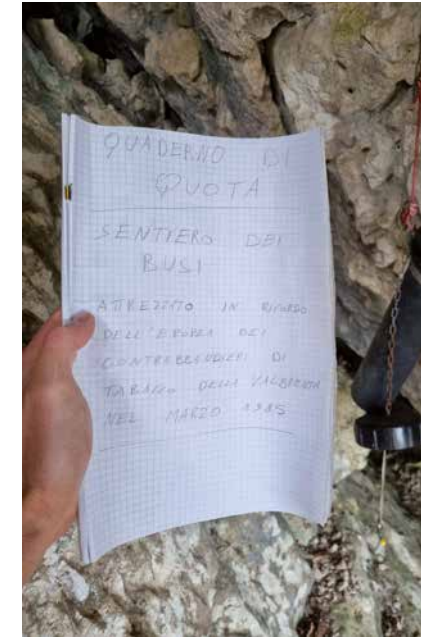 QUADERNO DI
QUOTA
SENTIERO DEI
BUSI
ATTREZZATO IN RICORDO
DELL'EPOPEA DEI
CONTRABBANDIERI DI
TABACCO DELLA VALBRENTA
NEL MARZO 1985